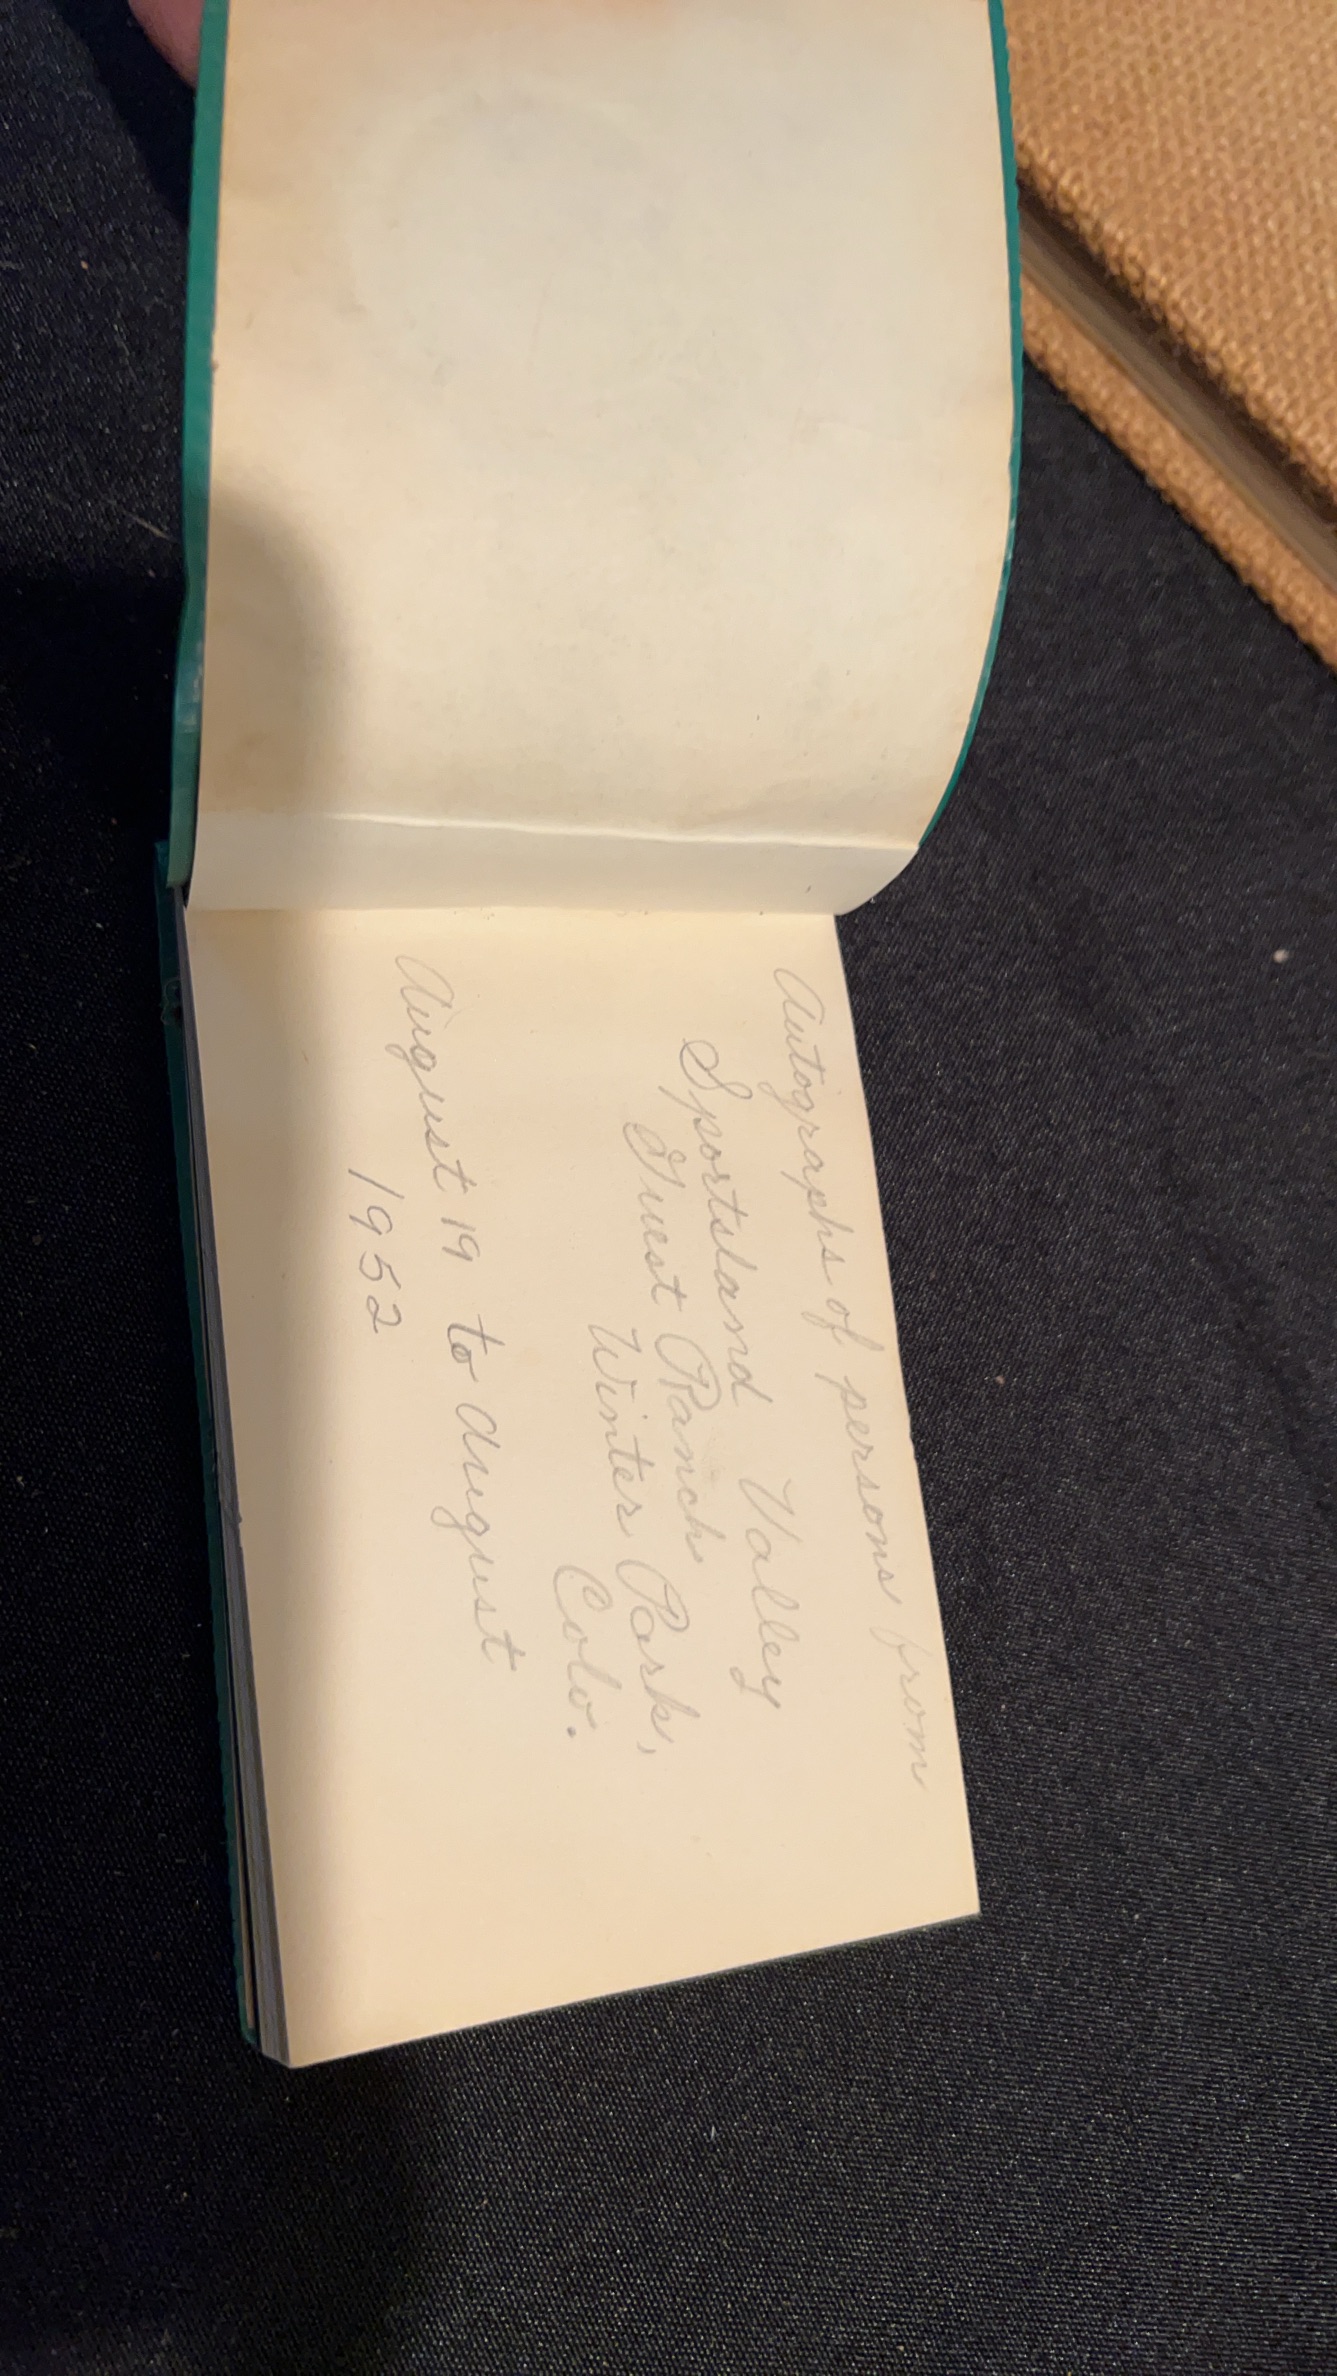 Autographs of persons from
Sportsland Valley
Guest Ranch
Winter Park,
Colo.
August 19 to August
1952